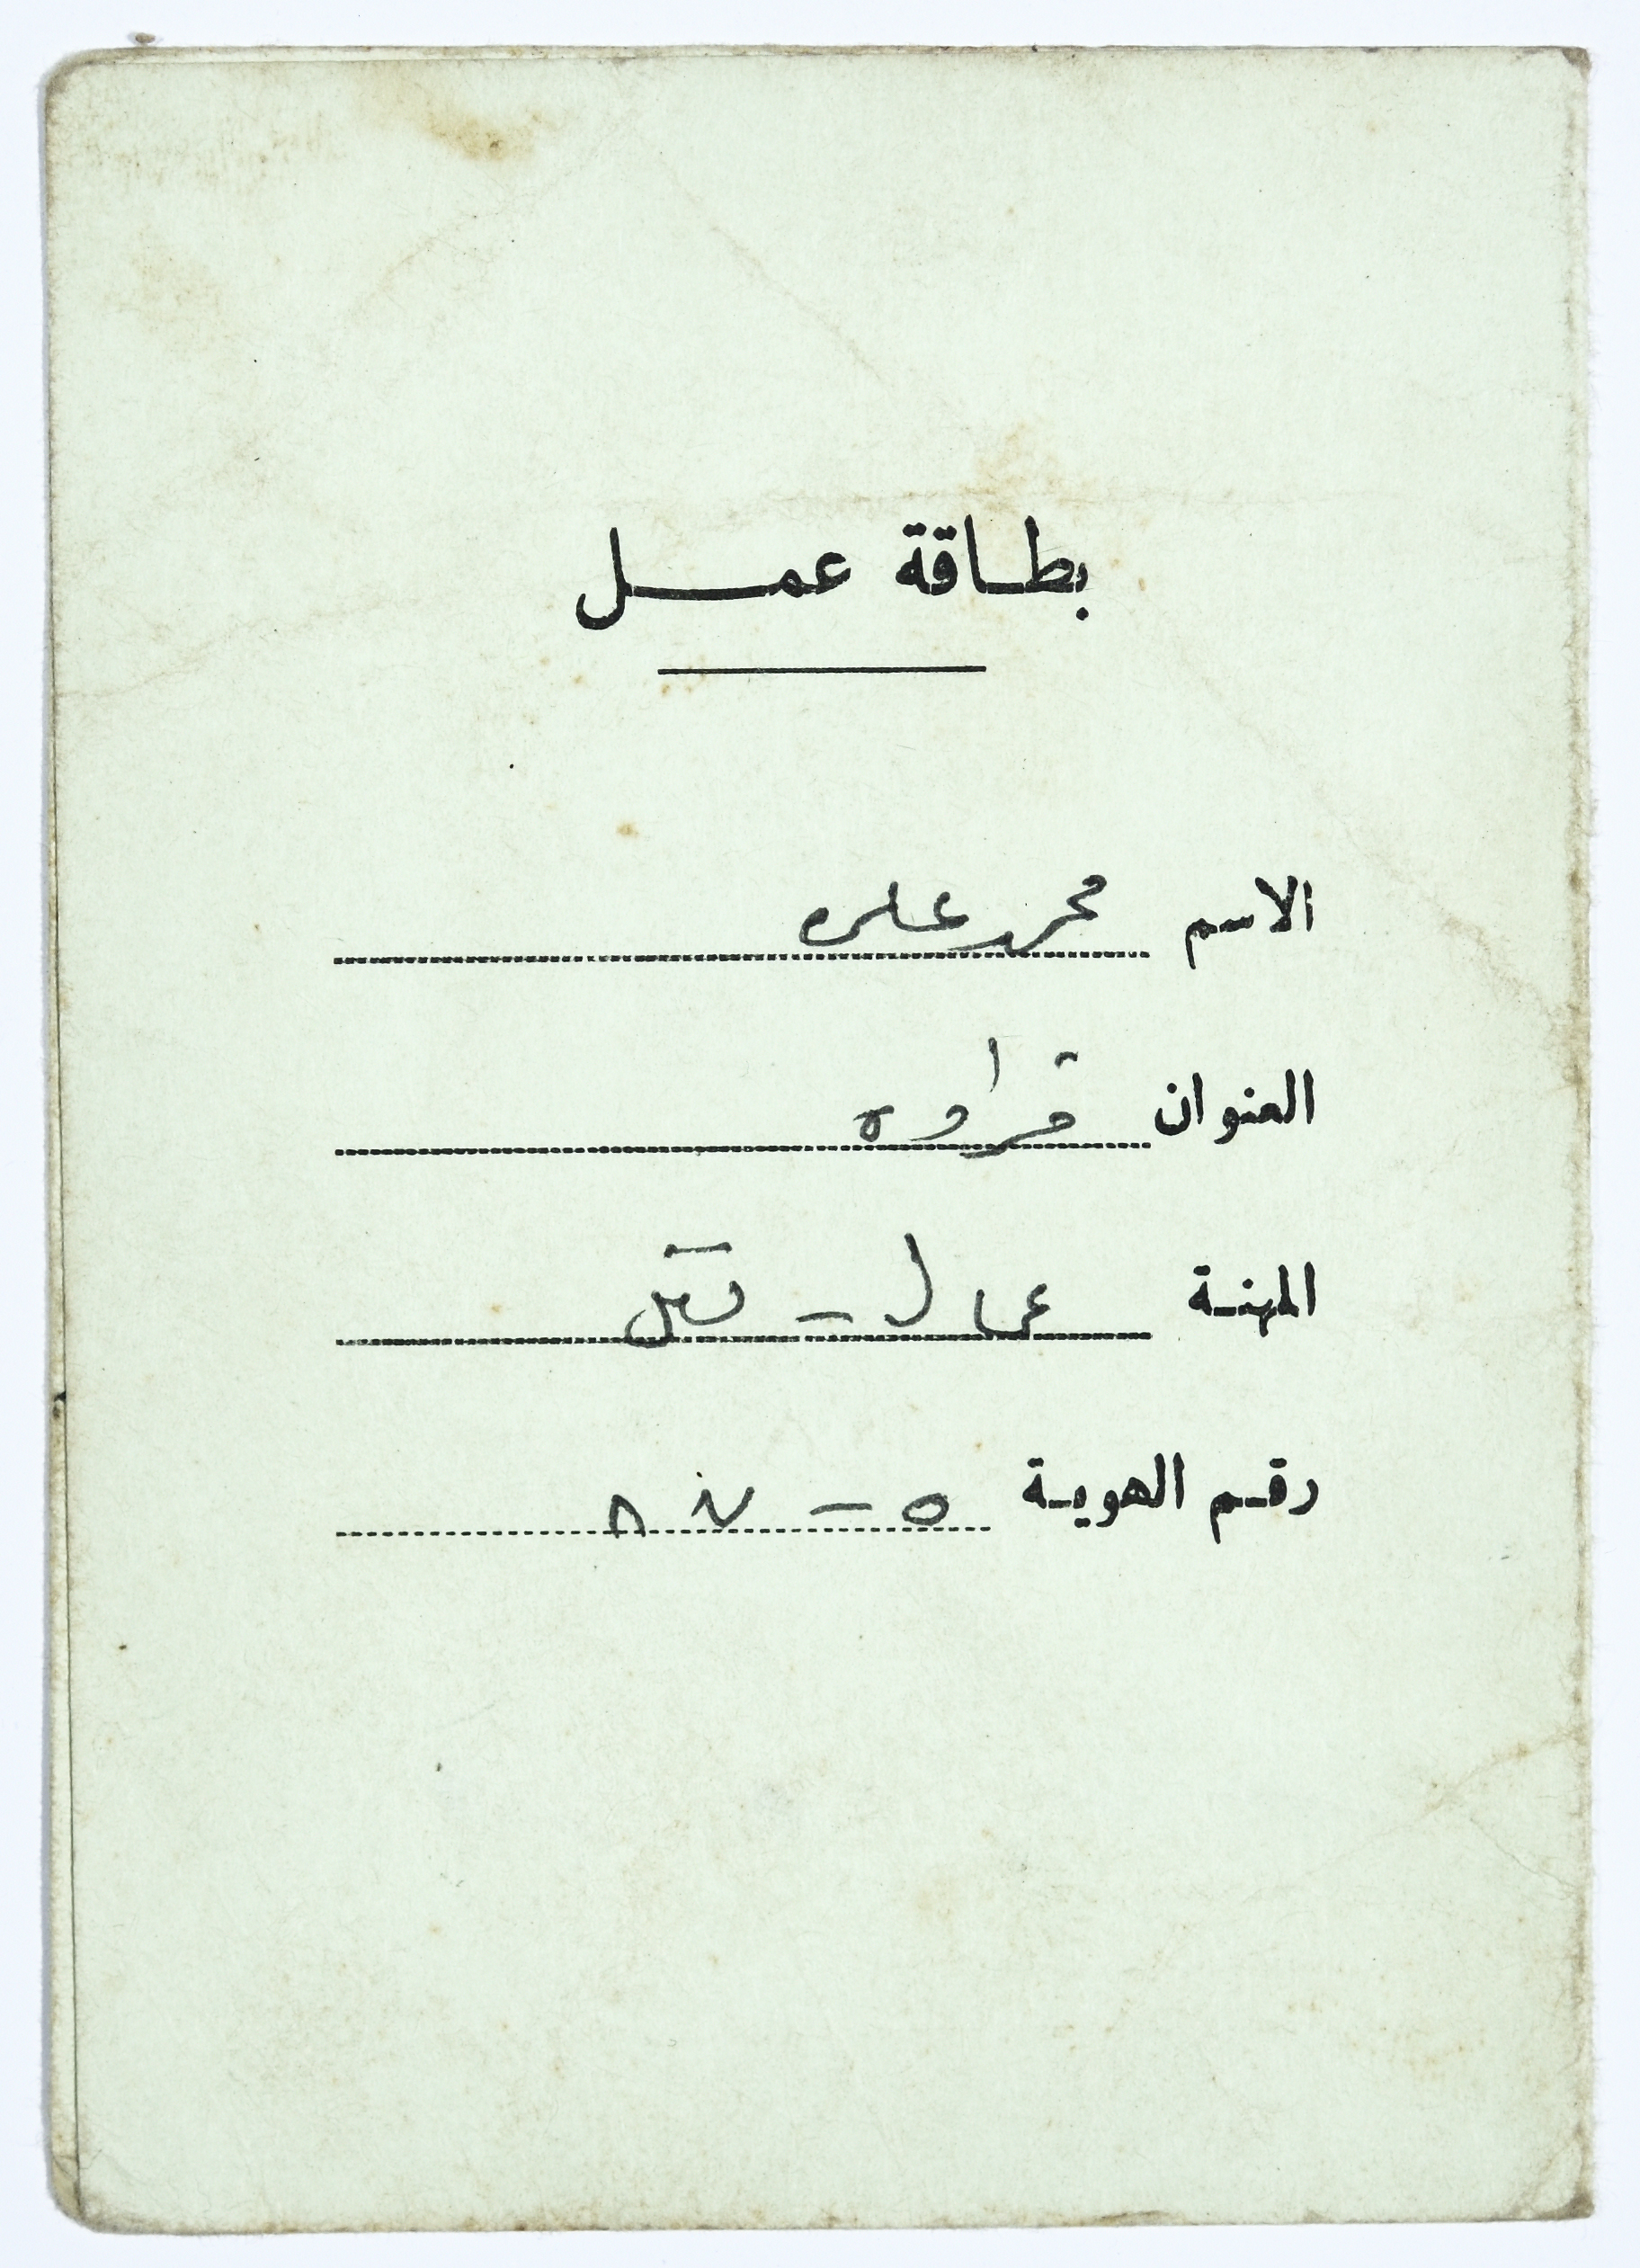 بطاقة عمل
الاسم محمد علي
العنوان قراوه
المهنة عمال -
رقم الهوية ٥ - ٧ ٨